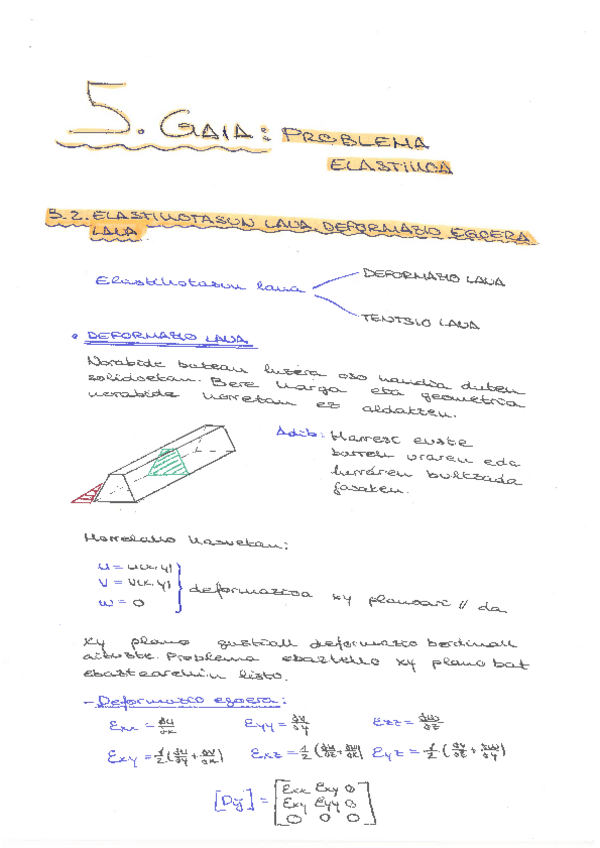 5. GAIA: PROBLEMA
ELASTIKOA
5.2. ELASTIKOTASUN LAUA. DEFORMAZIO EGOERA
LAUA
Elastikotasun laua
DEFORMAZIO LAUA
TENTSIO LAUA
• DEFORMAZIO LAUA
Norabide batean luzera oso handia duten
solidoetan. Bere karga eta geometria
norabide horretan ez aldatzen.
Adib: Harresi euste
barren uraren eda
lurraren bultzada
jasaten.
Horrelako kasuetan:
u = u(x,y)
v = v(x,y)
w = 0
deformazioa xy planoari // da
xy plano guztiak deformazio berdinak
dituzte. Problema ebazteko xy plano bat
ebaztearekin listo.
- Deformazio egoera:
Exx = ∂u/∂x Eyy = ∂v/∂y Ezz = ∂w/∂z
Exy = 1/2 (∂u/∂y + ∂v/∂x) Exz = 1/2 (∂u/∂z + ∂w/∂x) Eyz = 1/2 (∂v/∂z + ∂w/∂y)
[Dij] = [Exx Exy 0
Exy Eyy 0
0 0 0]